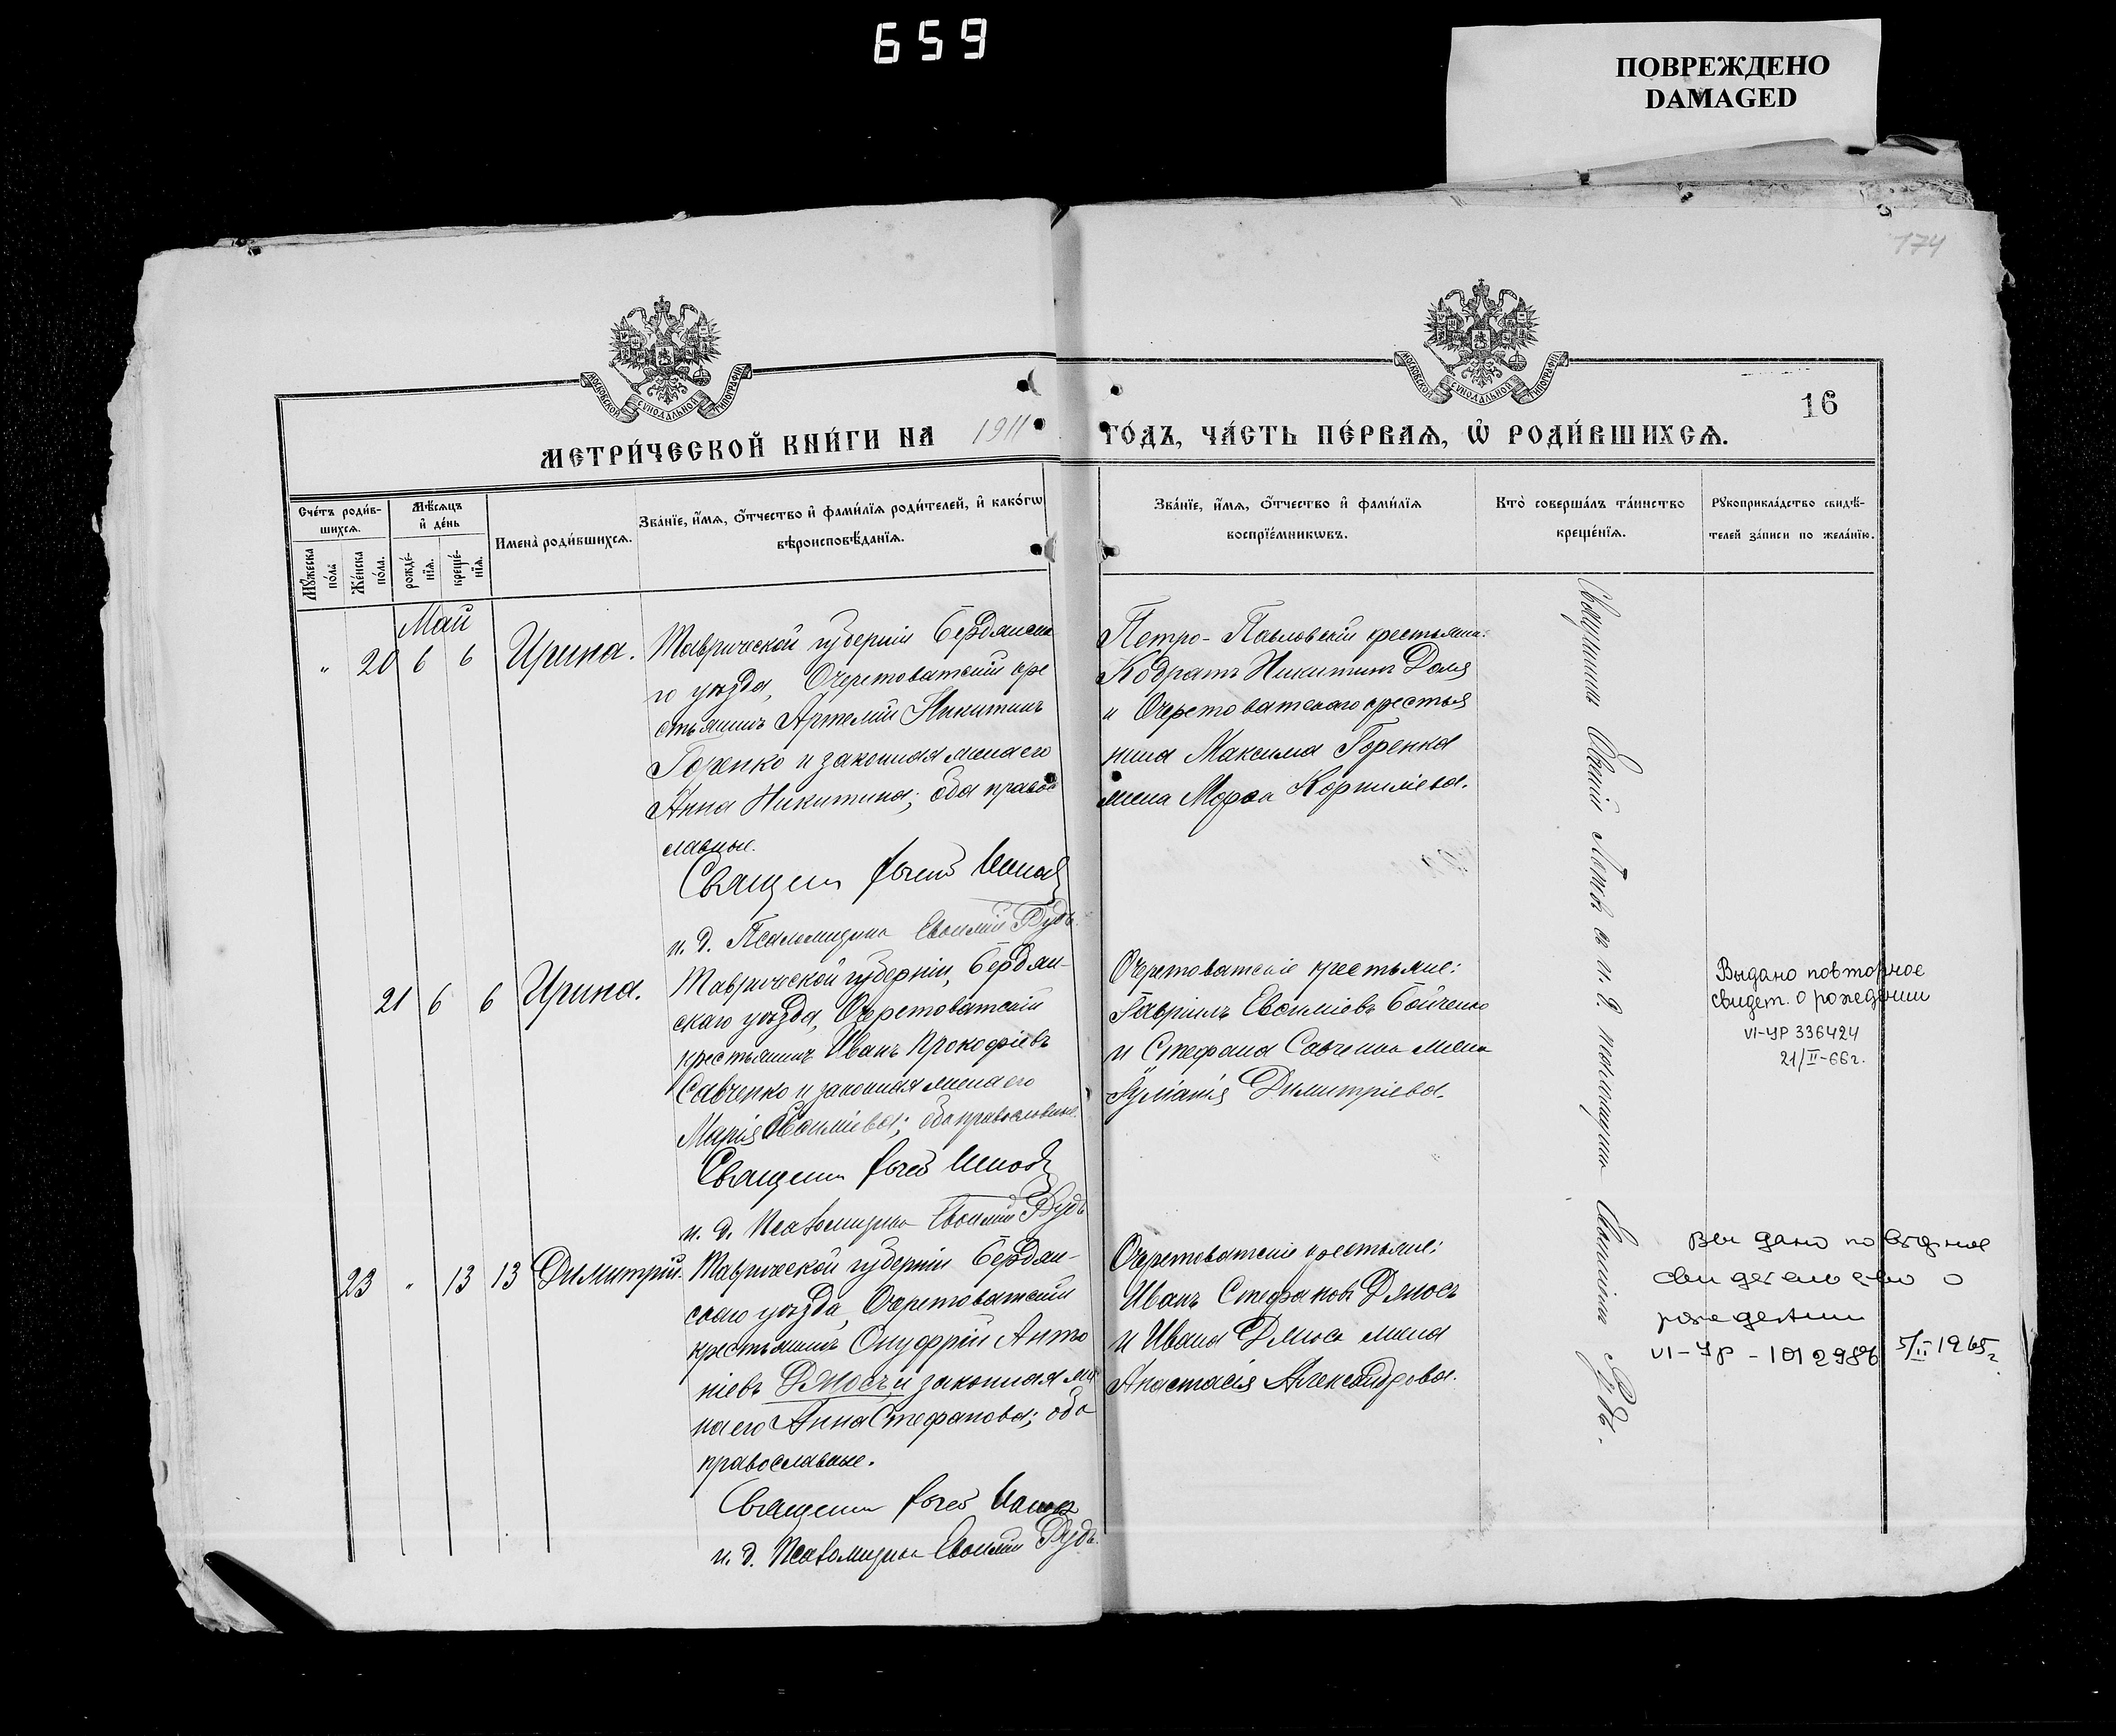 659
ПОВРЕЖДЕНО
DAMAGED
174
МОСКОВСКОЙ СУНОДАЛЬНОЙ ТИПОГРАФІИ
МОСКОВСКОЙ СУНОДАЛЬНОЙ ТИПОГРАФІИ
16
МЕТРИ́ЧЕСКОЙ КНИ́ГИ НА 1911 ГО́ДЪ, ЧА́СТЬ ПЕ́РВАѦ, Ѽ РОДИ́ВШИХСѦ.
Сче́тъ роди́в-
шихсѧ.
Мꙋ́жеска по́ла
Же́нска по́ла.
Мѣ́сѧцъ и҆ де́нь
рожде́-нїѧ.
креще́-нїѧ.
И҆мена̀ роди́вшихсѧ.
Зва́нїе, и҆́мѧ, ѻ҆́тчество и҆ фами́лїѧ роди́телей, и҆ како́гѡ
вѣроисповѣ́данїѧ.
Зва́нїе, и҆́мѧ, ѻ҆́тчество и҆ фами́лїѧ
воспрїе́мникѡвъ.
Кто̀ соверша́лъ та́инство
креще́нїѧ.
Рꙋкоприкла́дство свидѣ́-
телей за́писи по жела́нїю.
Май
" 20 6 6 Ирина.
Таврической губерніи Бердянска
го уѣзда, Очеретоватскій кре
стьянинъ Артемій Никитинъ
Горенко и законная жена его
Анна Никитина; оба правос
лавные.
Священ
и. д. Псаломщика Евфимій Рудь.
Петро-Павловскій крестьянин:
Кодратъ Никитинъ Доля
и Очеретоватскаго крестья
нина Максима Горенка
жена Марфа Корниліева.
21 6 6 Ирина.
Таврической губерніи, Бердян-
скаго уѣзда, Очеретоватскій
крестьянинъ Иванъ Прокофіевъ
Савченко и законная жена его
Марія Евфиміева; оба православные.
Священ
и. д. Псаломщика Евфимій Рудь
Очеретоватскіе крестьяне:
Гавріилъ Евфиміевъ Бойченко
и Стефана Савченка жена
Іуліанія Димитріева.
Выдано повторное
свидет. о рождении
VI-УР 336424
21/II-66г.
23 " 13 13 Димитрій.
Таврической губерніи Бердян-
скаго уѣзда, Очеретоватскій
крестьянинъ Онуфрій Анто
ніевъ Дмосъ и законная же
на его Анна Стефанова; оба
православные.
Священ
и. д. Псаломщика Евфимій Рудь.
Очеретоватскіе крестьяне:
Иванъ Стефановъ Дмосъ
и Ивана Дмоса жена
Анастасія Александрова.
Выдано повторное
свидетельство о
рождении
VI-УР - 1012986 5/II 1965г
Священникъ и. д. псаломщика Евфимій Рудь.